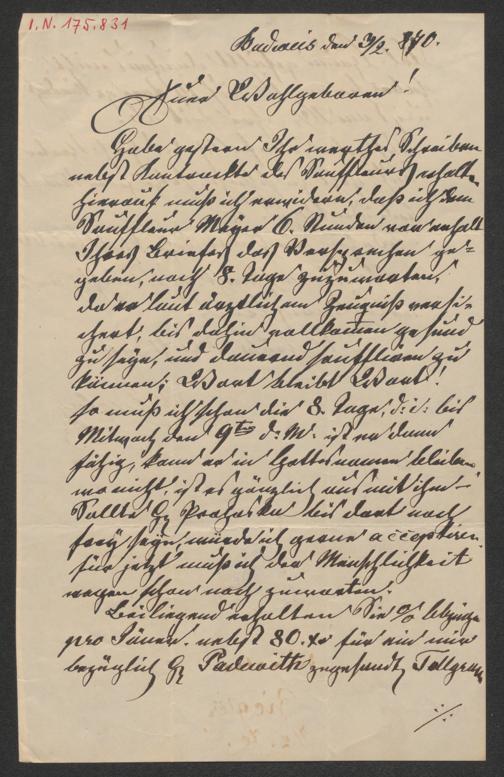 I. N. 175.831
Budweis den 3/2. 870.
Euer Wohlgeboren!
Habe gestern Ihr werthes Schreiben
nebst Kontrackte des Souffleurs erhalten
hierauf muß ich erwidern, daß ich dem
Souffleur Meyer 6. Stunden vor erhalt
Ihres Briefes das Versprechen ge-
geben, noch 8. Tage zuzuwarten,
da er laut ärztlichem Zeugniß versi-
chert, bis dahin vollkomen gesund
zu seyn, und dauernd soufliren zu
können; Wort bleibt Wort!
so muß ich schon die 8. Tage, d: i: bis
Mitwoch den 9ten d: M: ist er dann
fähig, kann er in Gottesnamen bleiben
wo nicht, ist es gänzlich aus mit ihm –
Sollte H: Prohaska bis dort noch
frey seyn, würde ich gerne acceptiren.
für jetzt muß ich der Menschlichkeit
wegen schon noch zuwarten.
Beiliegend erhalten Sie % Abzüge
pro Jäner. nebst 80. xr für ein mir
bezüglich H: Padewith zugesandtes Tellgram
./.